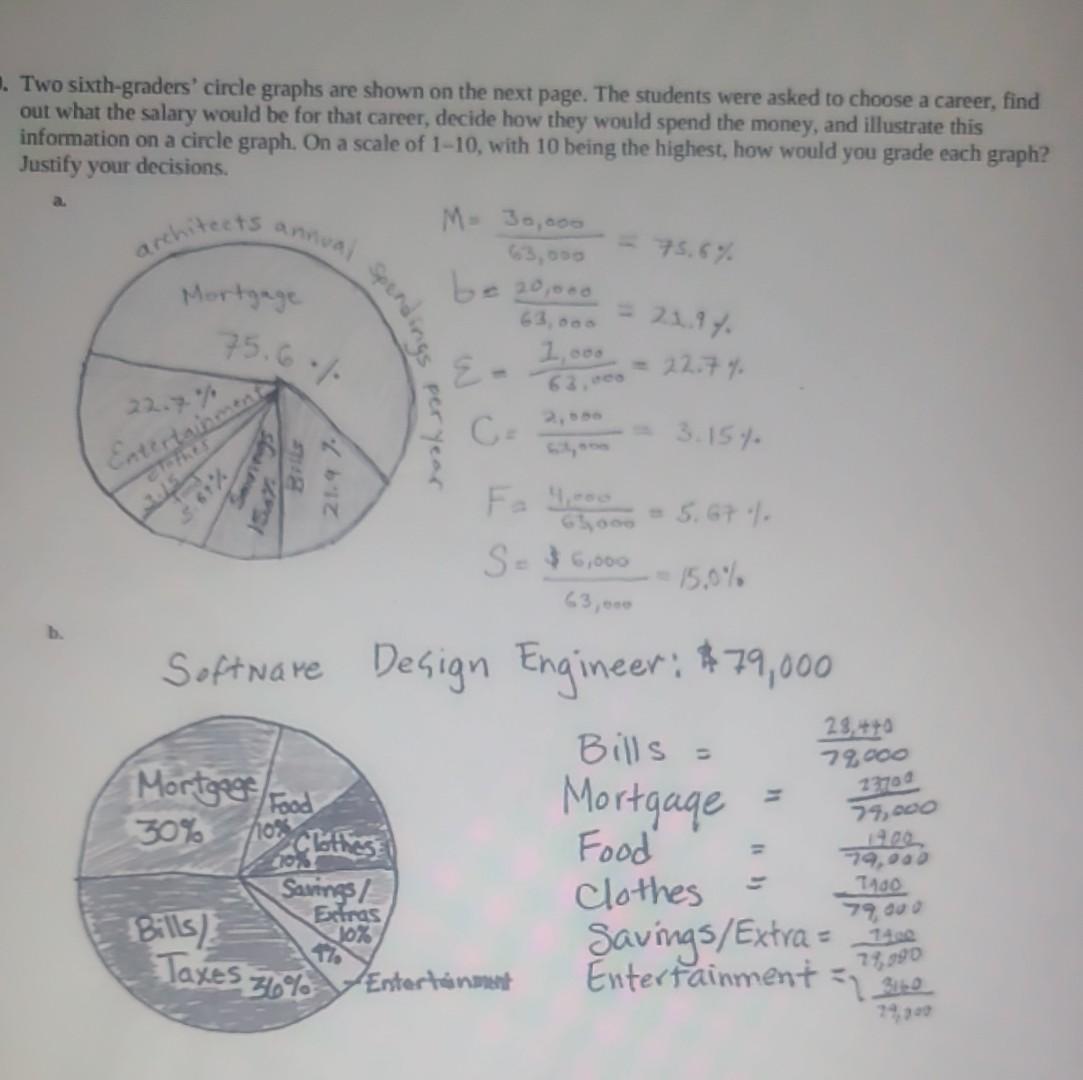 . Two sixth-graders' circle graphs are shown on the next page. The students were asked to choose a career, find
out what the salary would be for that career, decide how they would spend the money, and illustrate this
information on a circle graph. On a scale of 1–10, with 10 being the highest, how would you grade each graph?
Justify your decisions.
a.
architects annual spendings per year
Mortgage
75.6 %
22.7 %
Entertainment
clothes
3.15
5.67%
Savings
15.0%
Bills
21.9 %
M = 30,000
63,000
= 75.6%
b = 20,000
63,000
= 21.9%
E = 1,000
63,000
= 22.7%
C = 2,000
63,000
= 3.15%
F = 4,000
63,000
= 5.67%
S = $ 6,000
63,000
= 15.0%
b.
Software Design Engineer: $79,000
Mortgage
30%
Food
10%
Clothes
10%
Savings/
Extras
10%
4%
Entertainment
Bills/
Taxes 36%
Bills = 28,440
79,000
Mortgage = 23700
79,000
Food =
79,000
Clothes = 7900
79,000
Savings/Extra = 7900
79,000
Entertainment = 3160
79,000